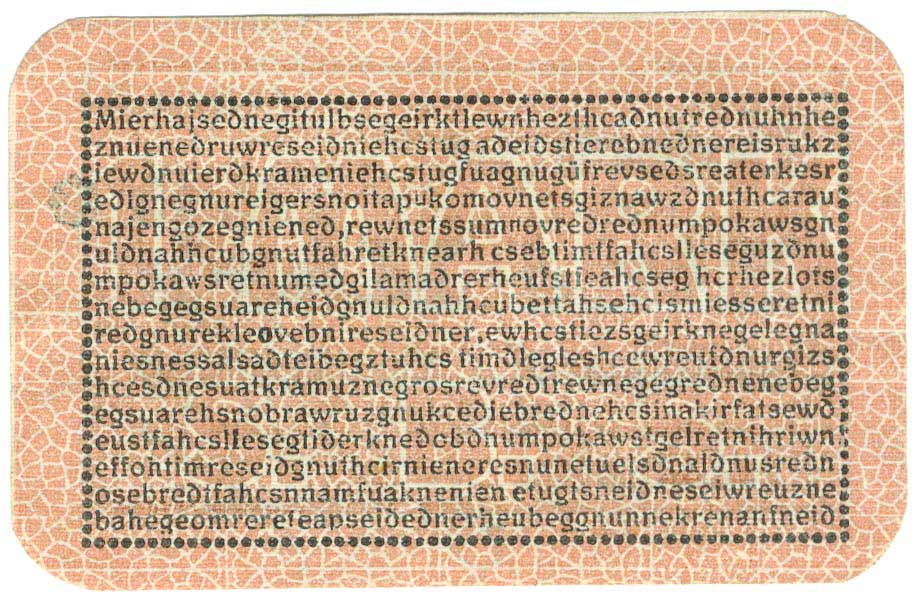 Mierhajsednegitulbsegeirktlewnhezthcadnutrednuhnhe
znuenedruwreseidniehcstug adeidstierebnednereisrukz
iewdnuierdkrameniehcstugfuagnugüfrevsedsreaterkesr
edlgnegnureigersnoitapukomovnetsgiznawzdnuthcarau
najengozegniened,rewnetssumnovredrednumpokawsgn
uldnahhcubgnutfahretknearh csebtimtfahcslleseguzdnu
mpokawsretnumedgilamadrerheufstfeahcseg hcrhezlots
nebegegsuareheidgnuldnahhcubettahsehcismiesseretni
redgnurekleovebnireseidner,ewhcstiezsgeirknegelegna
niesnessalsadteibegztuhcs timdlegleshcewreuifdnurgizs
hcesdnesuatkramuznegrosrevredtrewnegegrednenebeg
egsuarehsnobrawruzgnukcediebrednehcsinakirfatsewd
eustfahcsllesegtiderknedobdnumpokawstgelretnihriwn
effohtimreseidgnuthcirnieneresnunetuelsdnaldnusredn
osebredtfahcsnnamfuaknenien etugtsneidneseiwreuzne
bahegeomrereteapseidednerheubeggnunnekrenanfneid